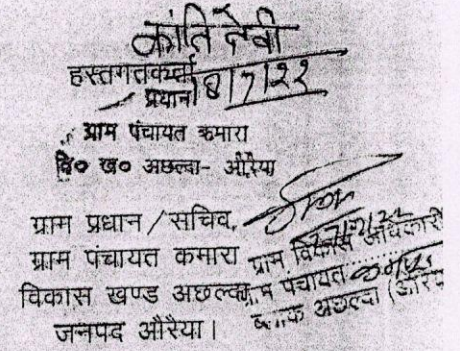 कांति देवी
हस्तगतकर्ता 8/7/22
प्रधान
ग्राम पंचायत कमारा
वि० ख० अछल्दा- औरैया
ग्राम प्रधान / सचिव,
ग्राम पंचायत कमारा
विकास खण्ड अछल्दा
जनपद औरैया।
ग्राम विकास अधिकारी
ग्राम पंचायत.....कमारा
ब्लाक अछल्दा (औरैया